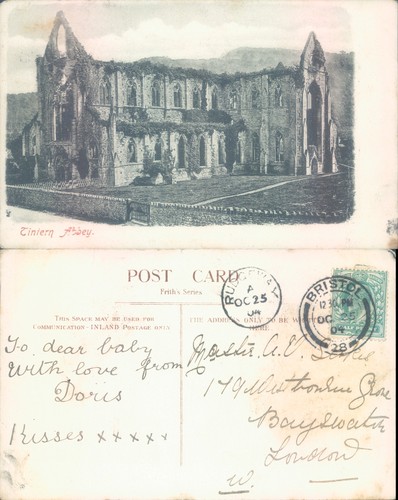 Tintern Abbey.
POST CARD
Frith's Series
THIS SPACE MAY BE USED FOR
COMMUNICATION - INLAND POSTAGE ONLY
THE ADDRESS ONLY TO BE WRITTEN
HERE
A
OC 25
04
BRISTOL
12 30 PM
OC 25
28
To dear baby
With love from
Doris
Kisses x x x x x
Master A.V.
179 Westbourne Grove
Bayswater
London
W.